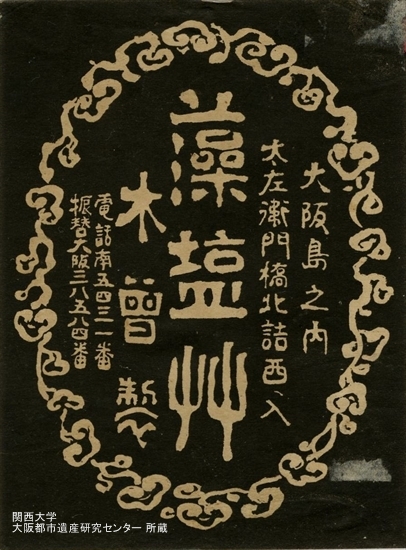 大阪島之内
太左衛門橋北詰西入
藻塩艸
木曽製
電話南五四三一番
振替大阪三八五八四番
関西大学
大阪都市遺産研究センター 所蔵